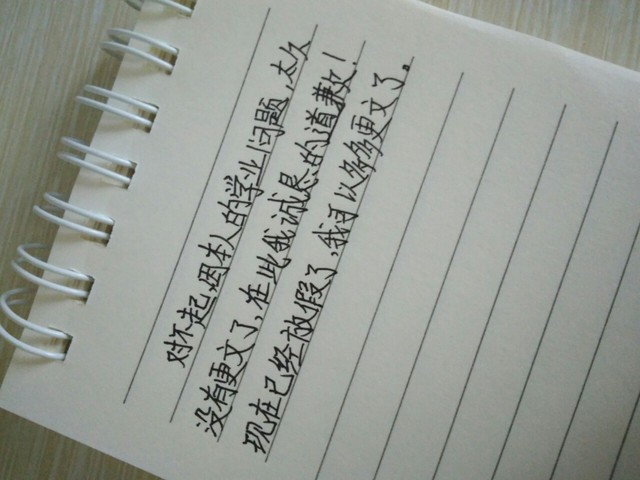 对不起,因本人的学业问题,太久
没有更文了,在此我诚恳的道歉!
现在已经放假了,我可以多多更文了。